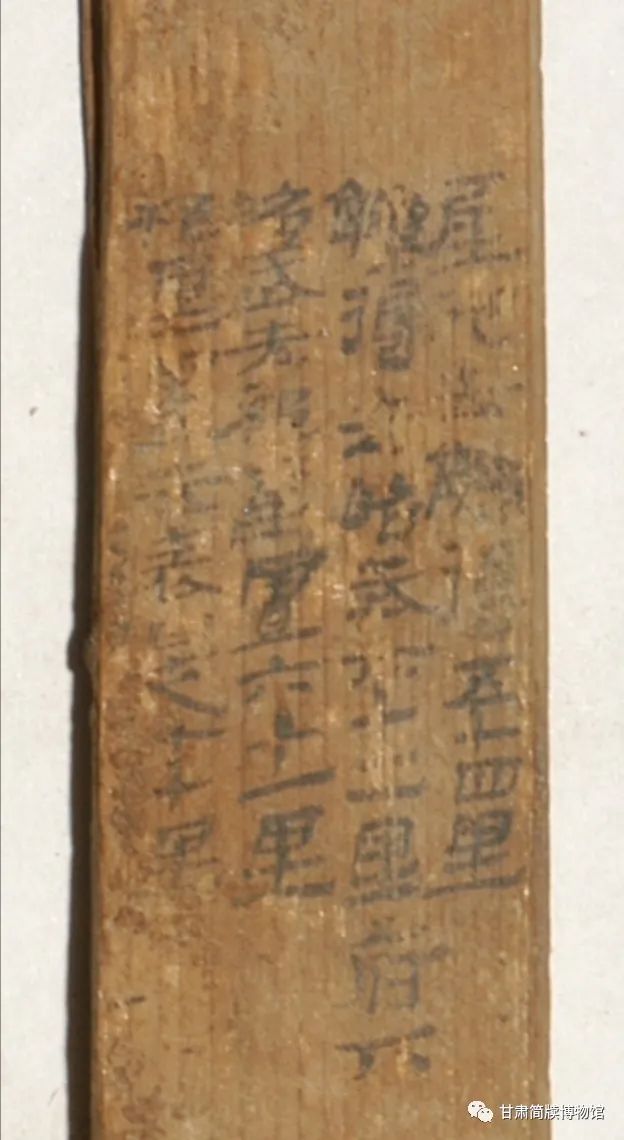 氐池去觻得五十四里
觻得去昭武六十二里府下
昭武去祁連置六十一里
祁連置去表是七十里
甘肃简牍博物馆